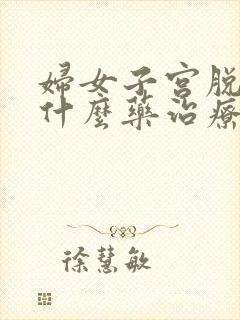 婦女子宮脫
什麼藥治療
徐慧敏